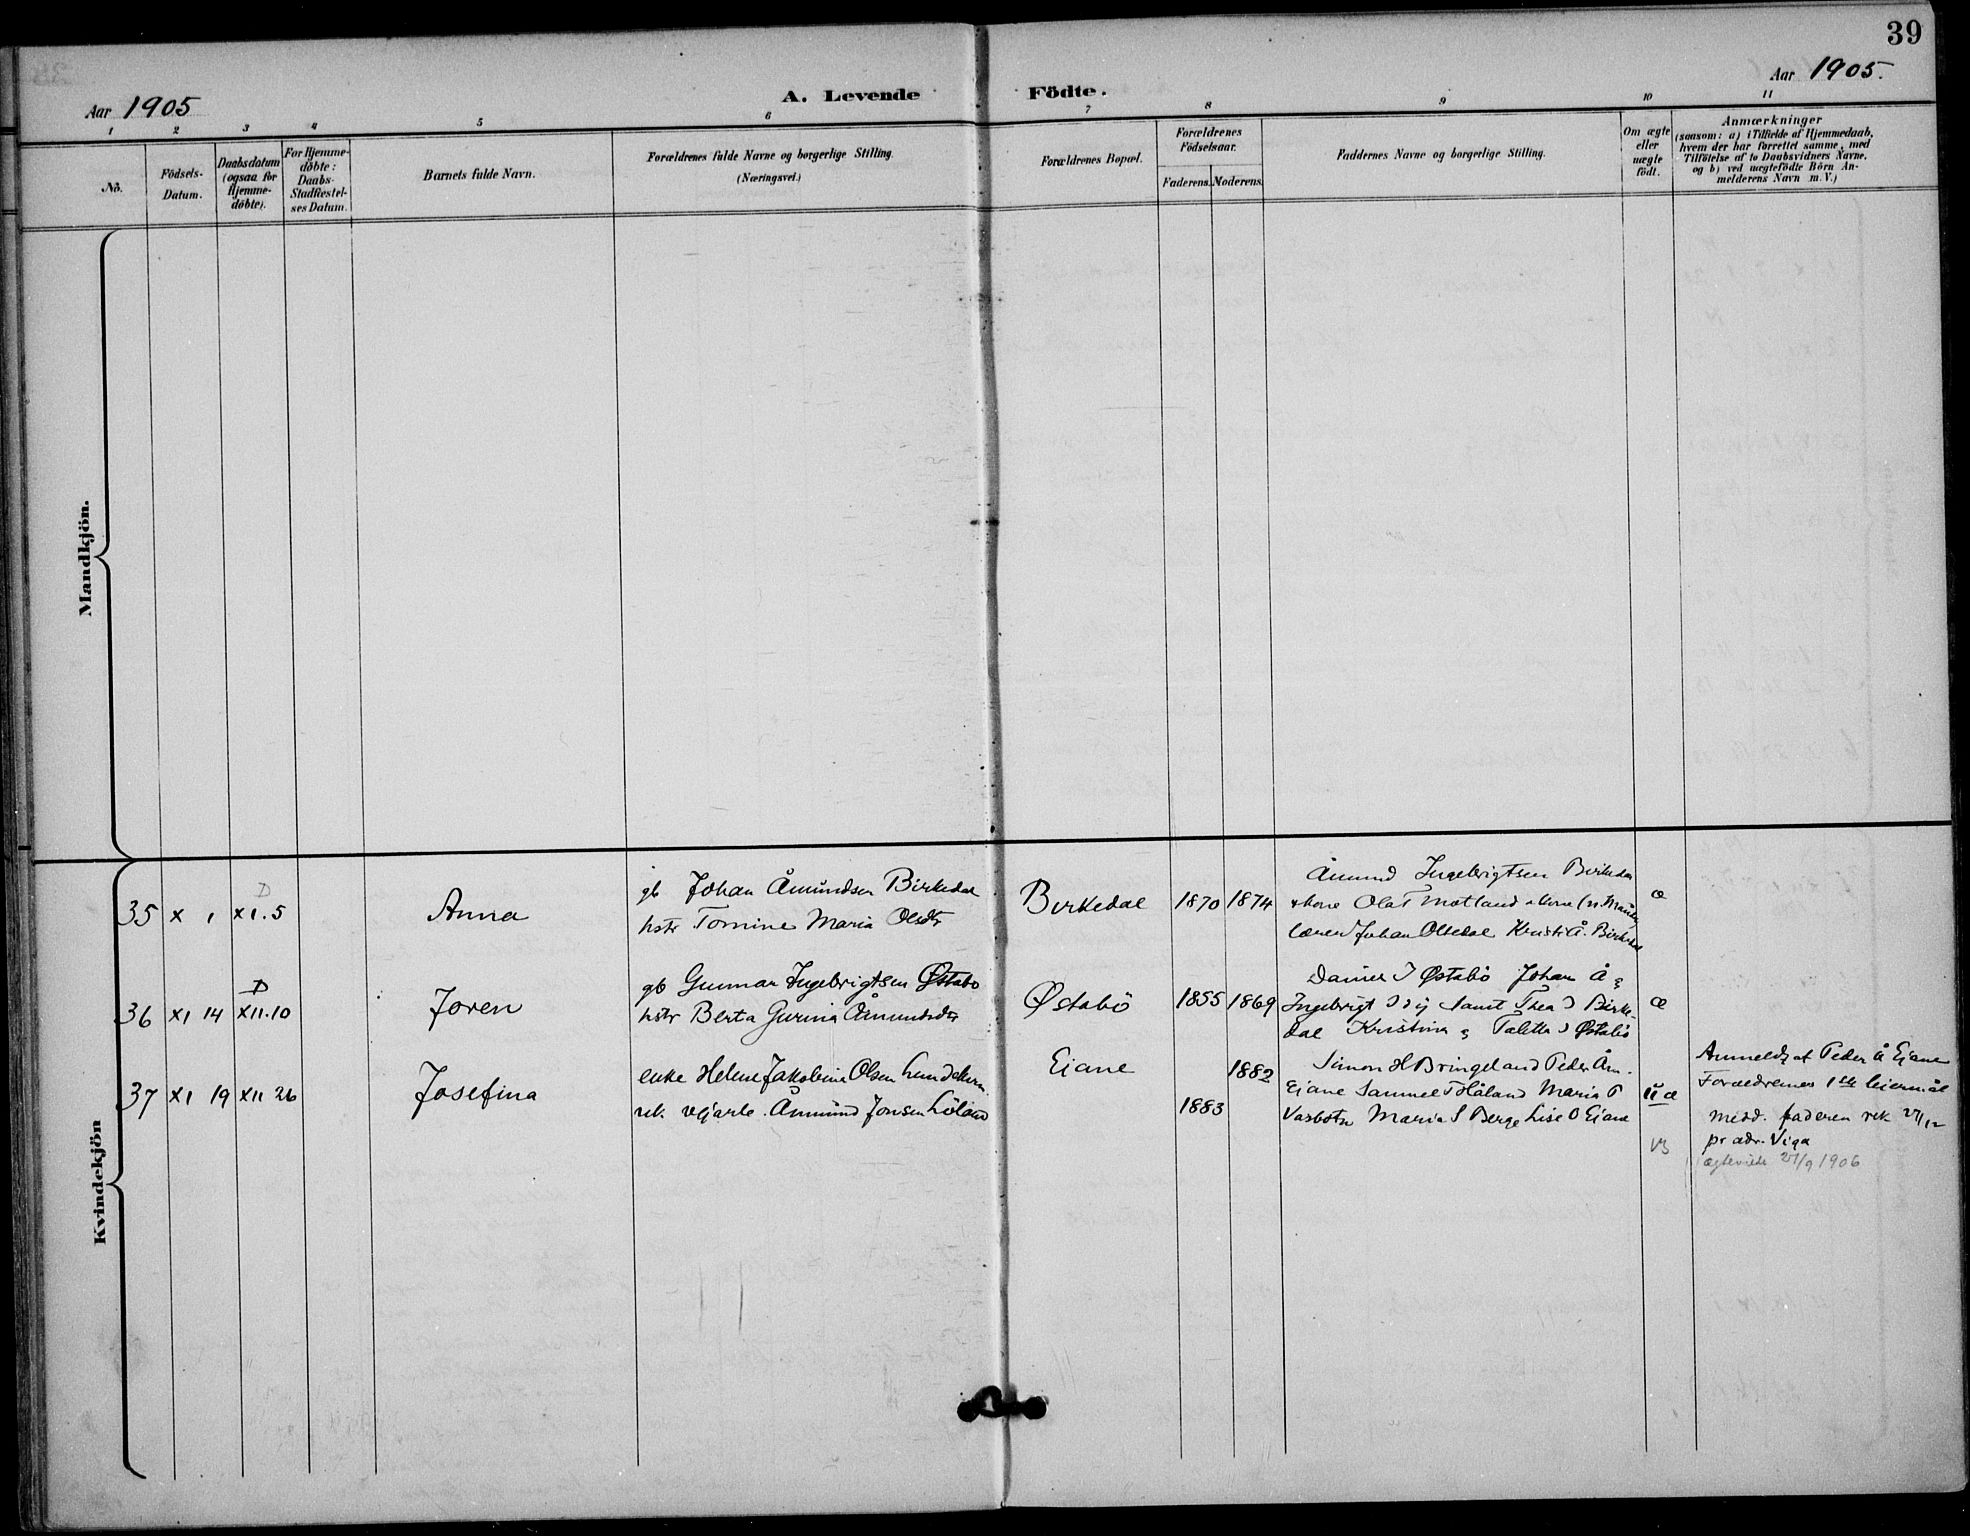 39
Aar 1905
A. Levende Födte.
Aar 1905.
1 2 3 4 5 6 7 8 9 10 11
No.
Födsels-
Datum.
Daabsdatum
(ogsaa for
Hjemme-
döbte).
For Hjemme-
döbte:
Daabs-
Stadfæstel-
ses Datum.
Barnets fulde Navn.
Forældrenes fulde Navne og borgerlige Stilling.
(Næringsvei.)
Forældrenes Bopæl.
Forældrenes
Födselsaar.
Faderens. Moderens.
Faddernes Navne og borgerlige Stilling.
Om ægte
eller
uægte
födt.
Anmærkninger
(saasom: a) i Tilfælde af Hjemmedaab,
hvem der har forrettet samme, med
Tilföielse af to Daabsvidners Navne,
og b) ved uægtefödte Börn An-
melderens Navn m. V.)
Mandkjön.
Kvindekjön
35 X 1 D XI.5
Anna
gb Johan Åmundsen Birkedal
hstr Tomine Maria Olsdtr
Birkedal
1870 1874
Åmund Ingebrigtsen Birkedal
& kone Ola T Motland & kone
lærer Johan Oltedal Kristi Å. Birkedal
æ
36 XI 14 D XII.10
Joren
gb Gunnar Ingebrigtsen Østabö
hstr Berta Gurina Åmundsdtr
Østabö
1855 1869
Østabö Johan Å
Ingebrigt samt Thea I Birke-
dal Kristina Taletta I Østabö
æ
37 XI 19 XII 26
Josefina
enke Helene Jakobine Olsen
rek. vejarb. Åmund Jonsen Löland
Eiane
1883
1882
Simon H Bringeland Peder Åm.
Eiane Samuel T Håland Maria P
Vasbotn Maria S Berge Lise O Eiane
uæ
Anmeldt af Peder Å Eiane
Forældrenes 1ste leiermål
medd. faderen rek 27/12
pr adr. Viga
ægteviede 27/9 1906